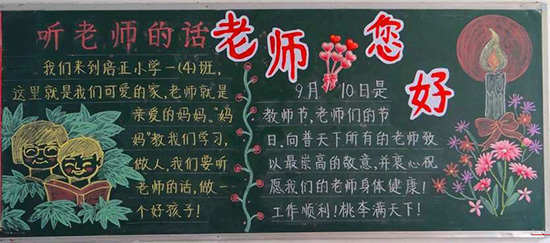 听老师的话
我们来到培正小学一(4)班,
这里就是我们可爱的家,老师就是
亲爱的妈妈。"妈
妈"教我们学习,
做人,我们要听
老师的话,做一
个好孩子!
老师您好
9月10日是
教师节,老师们的节
日,向普天下所有的老师致
以最崇高的敬意,并衷心祝
愿我们的老师身体健康!
工作顺利!桃李满天下!